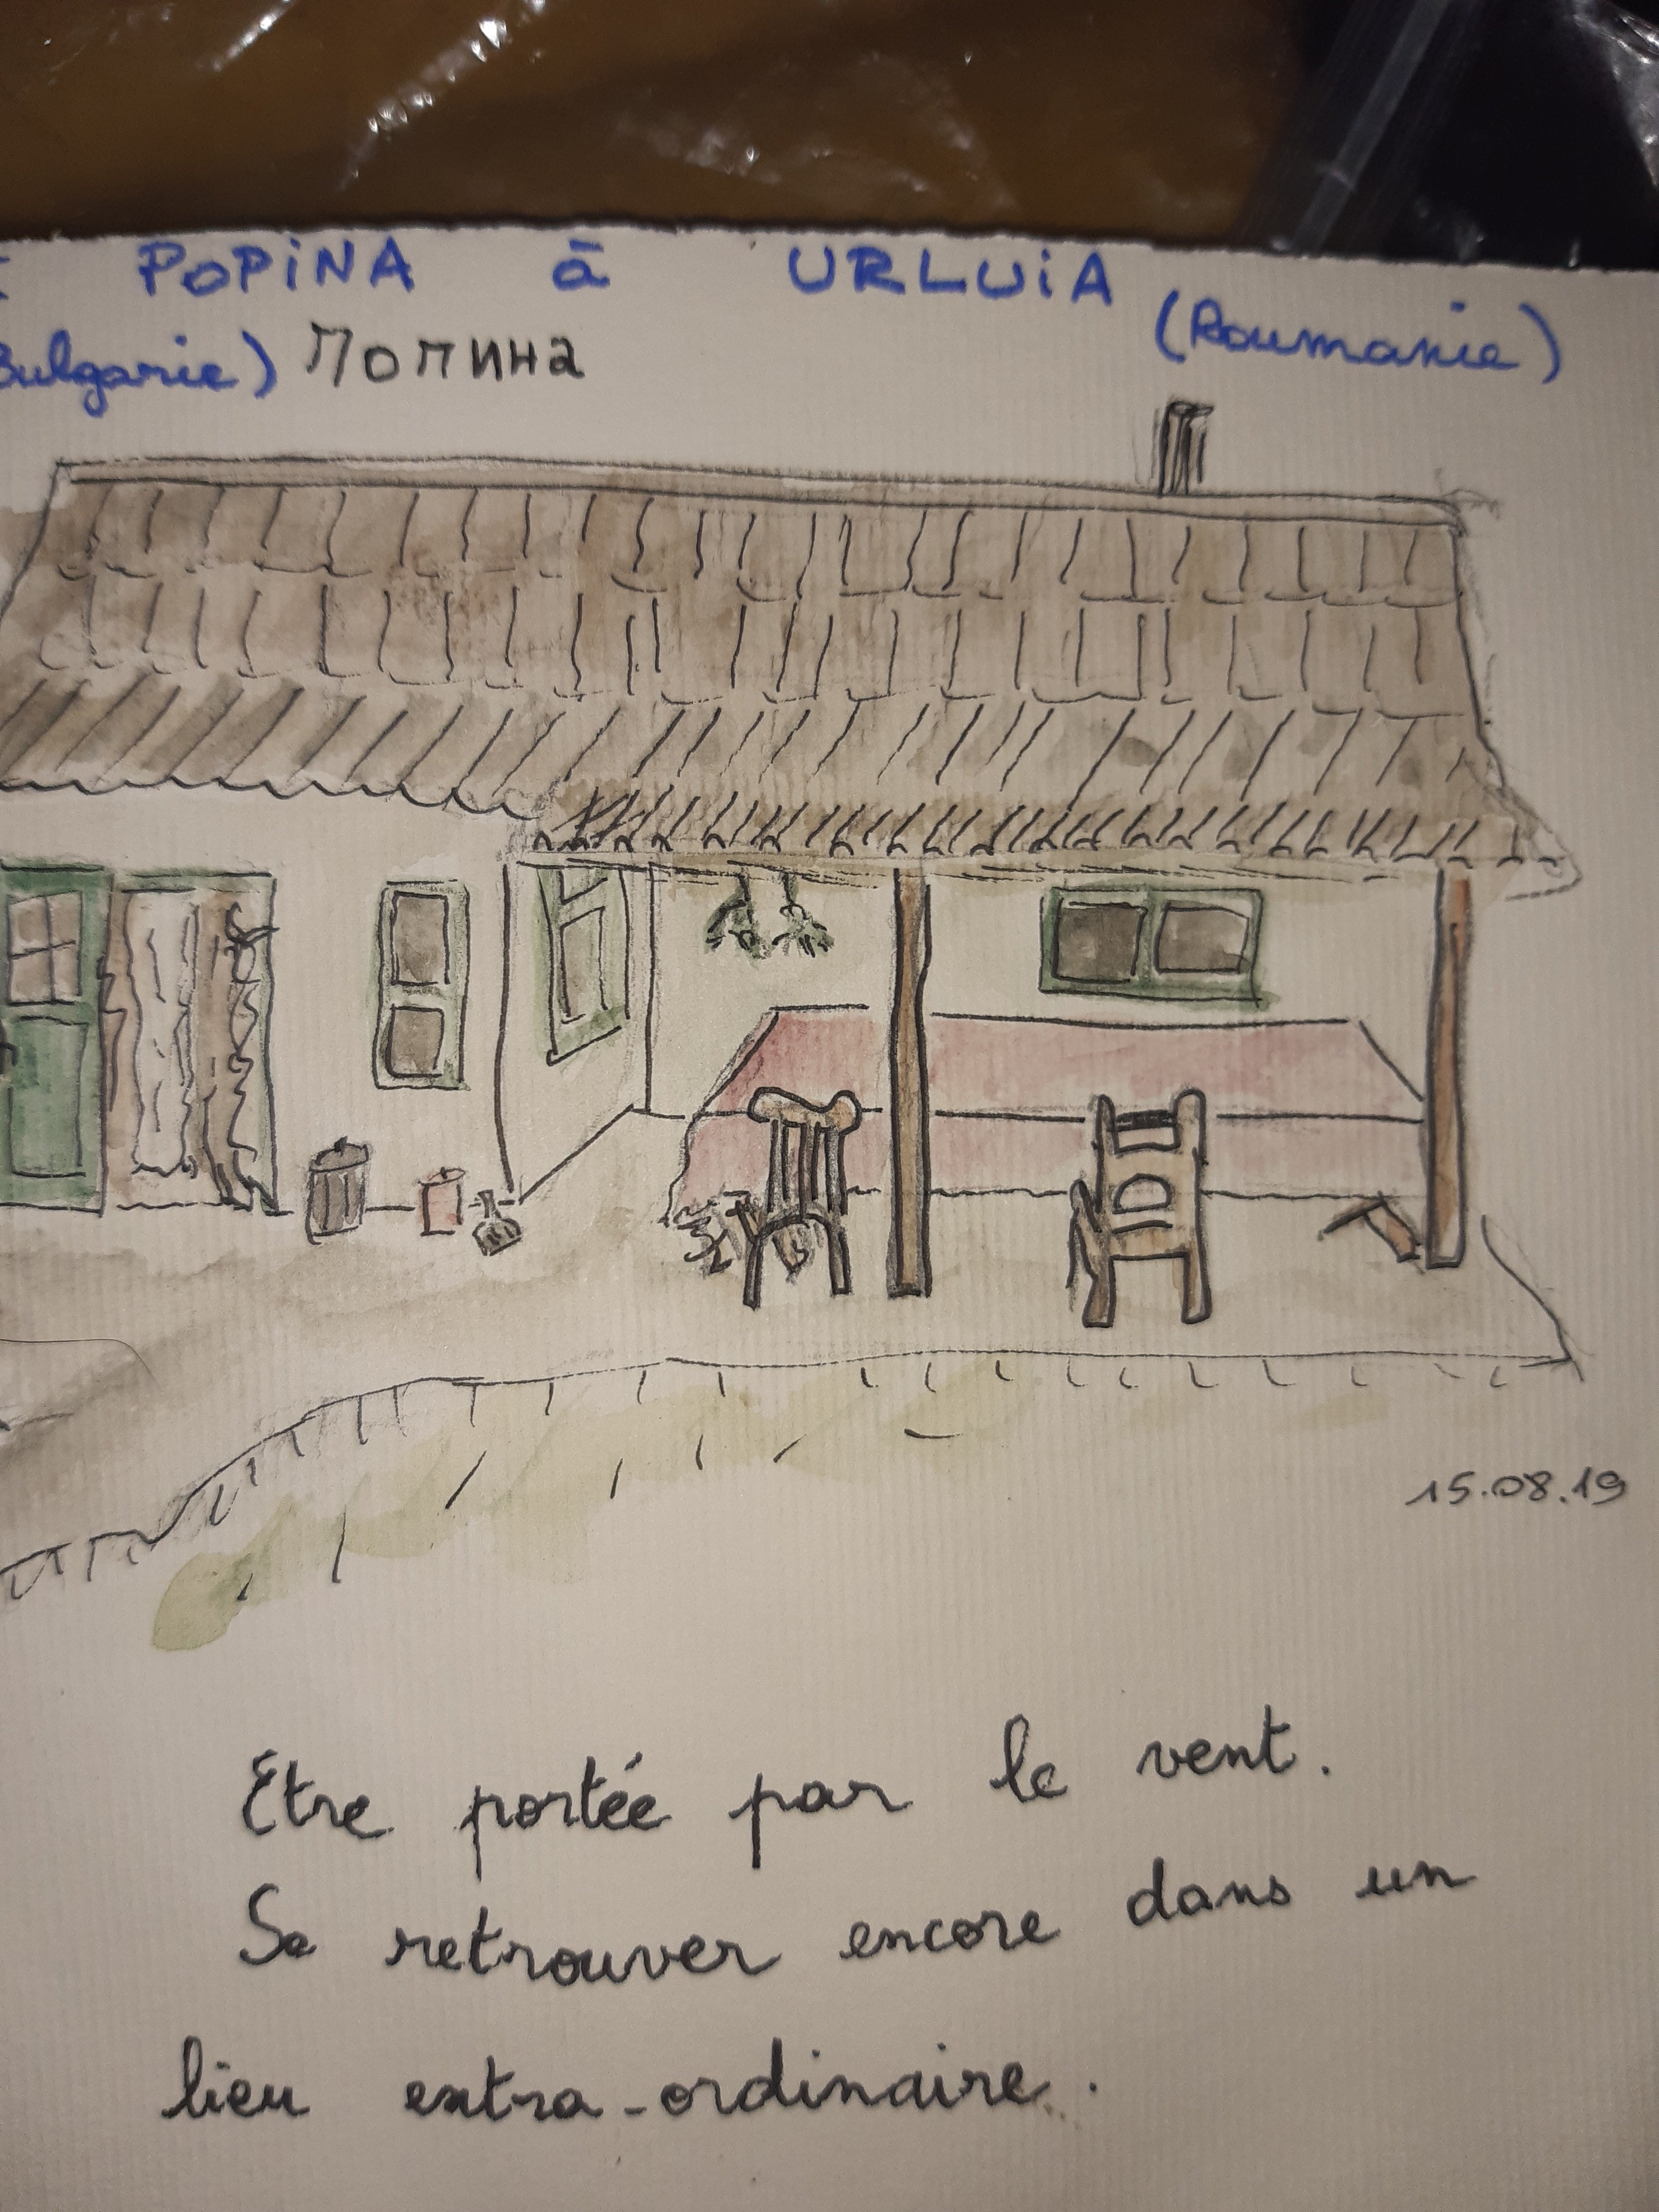 POPiNA à URLUiA
(Roumanie)
Bulgarie) Попина
15.08.19
Etre portée par le vent.
Se retrouver encore dans un
lieu extra-ordinaire.